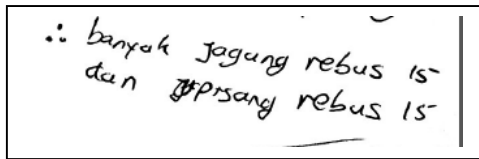 ∴ banyak jagung rebus 15
dan pisang rebus 15